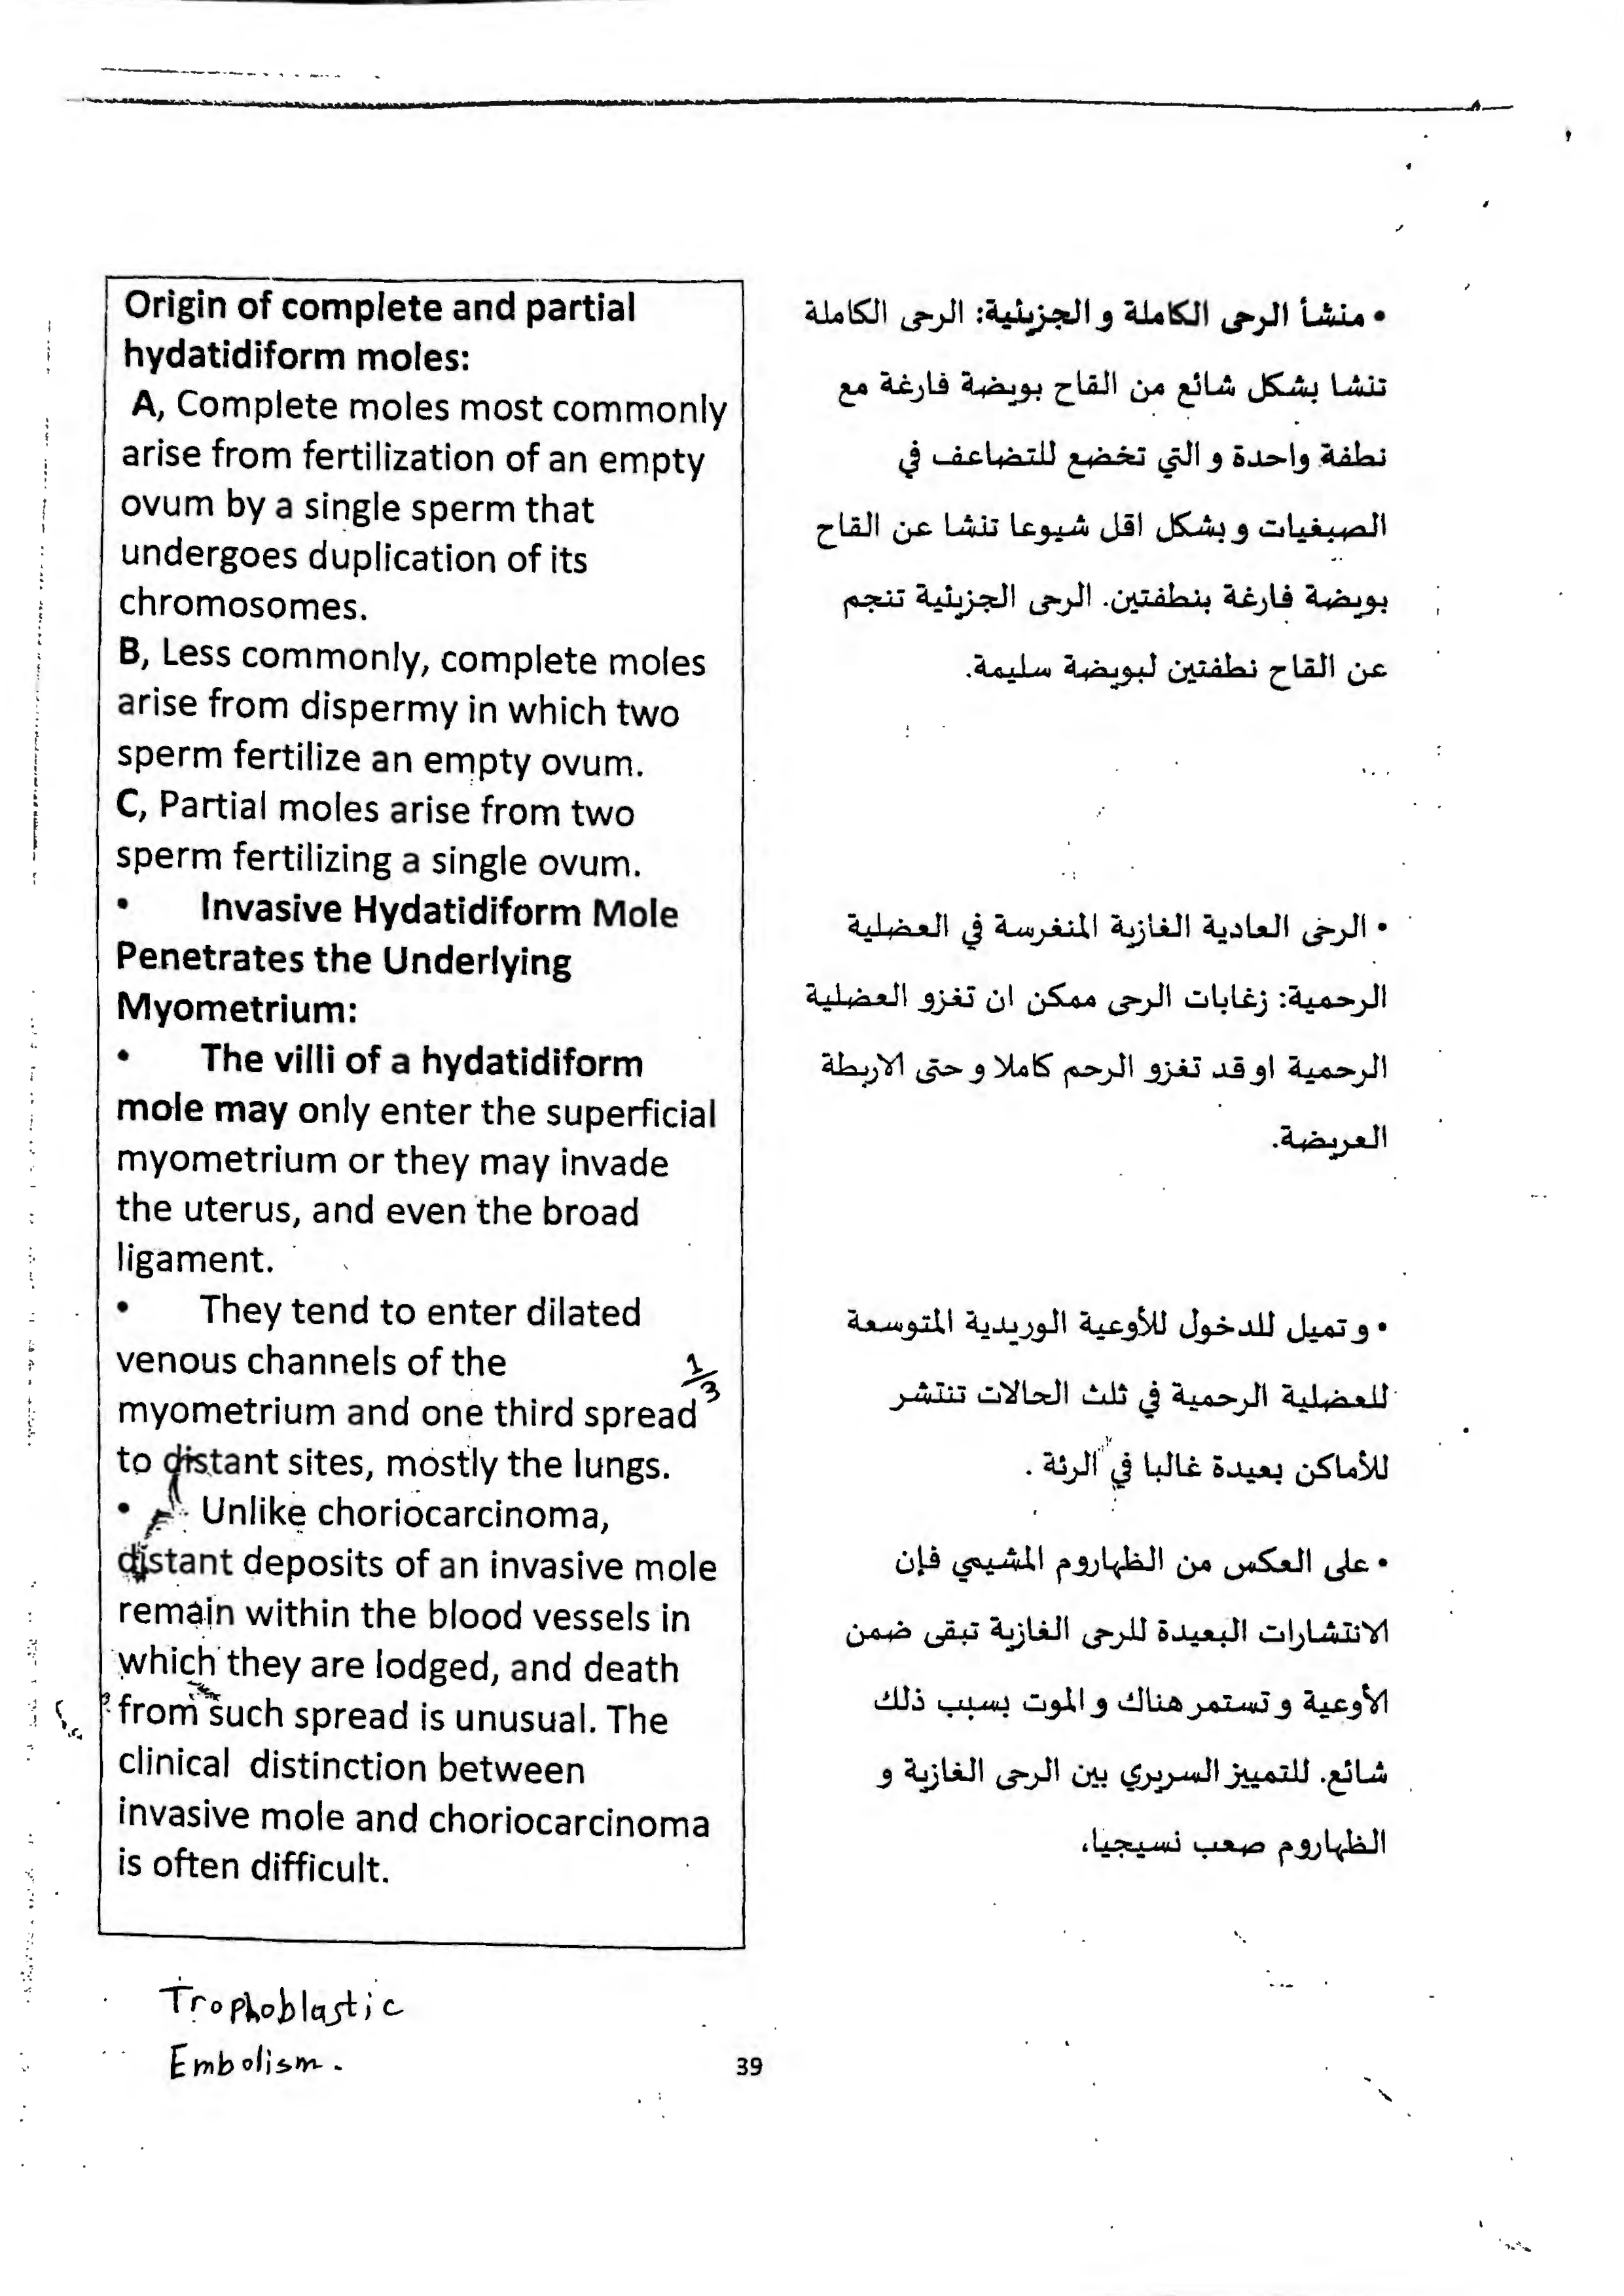 Origin of complete and partial
hydatidiform moles:
A, Complete moles most commonly
arise from fertilization of an empty
ovum by a single sperm that
undergoes duplication of its
chromosomes.
B, Less commonly, complete moles
arise from dispermy in which two
sperm fertilize an empty ovum.
C, Partial moles arise from two
sperm fertilizing a single ovum.
• Invasive Hydatidiform Mole
Penetrates the Underlying
Myometrium:
• The villi of a hydatidiform
mole may only enter the superficial
myometrium or they may invade
the uterus, and even the broad
ligament.
• They tend to enter dilated
venous channels of the
myometrium and one third spread
1/3
to distant sites, mostly the lungs.
• Unlike choriocarcinoma,
distant deposits of an invasive mole
remain within the blood vessels in
which they are lodged, and death
from such spread is unusual. The
clinical distinction between
invasive mole and choriocarcinoma
is often difficult.
Trophoblastic
Embolism.
• منشأ الرحى الكاملة و الجزيئية: الرحى الكاملة
تنشا بشكل شائع من القاح بويضة فارغة مع
نطفة واحدة و التي تخضع للتضاعف في
الصبغيات و بشكل اقل شيوعا تنشا عن القاح
بويضة فارغة بنطفتين. الرحى الجزيئية تنجم
عن القاح نطفتين لبويضة سليمة.
• الرحى العادية الغازية المنغرسة في العضلية
الرحمية: زغابات الرحى ممكن ان تغزو العضلية
الرحمية او قد تغزو الرحم كاملا و حتى الاربطة
العريضة.
• و تميل للدخول للأوعية الوريدية المتوسعة
للعضلية الرحمية في ثلث الحالات تنتشر
للأماكن بعيدة غالبا في الرئة .
• على العكس من الظهاروم المشيمي فإن
الانتشارات البعيدة للرحى الغازية تبقى ضمن
الأوعية و تستمر هناك و الموت بسبب ذلك
شائع. للتمييز السريري بين الرحى الغازية و
الظهاروم صعب نسيجيا.
39